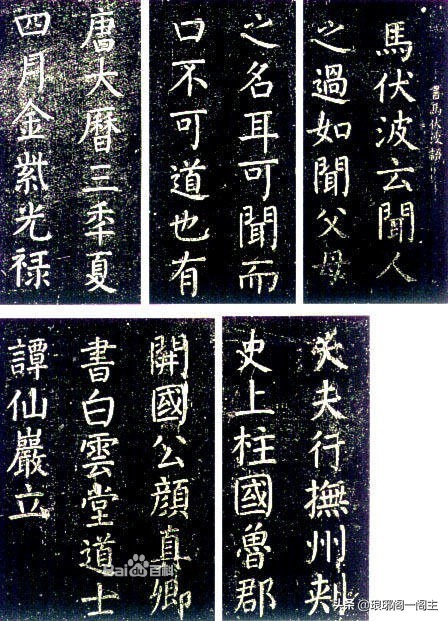 書馬伏波語
馬伏波云聞人
之過如聞父母
之名耳可聞而
口不可道也有
唐大曆三秊夏
四月金紫光禄
大夫行撫州刺
史上柱國魯郡
開國公顔真卿
書白雲堂道士
譚仙巖立
Bai百科
头条 @琅琊阁一阁主